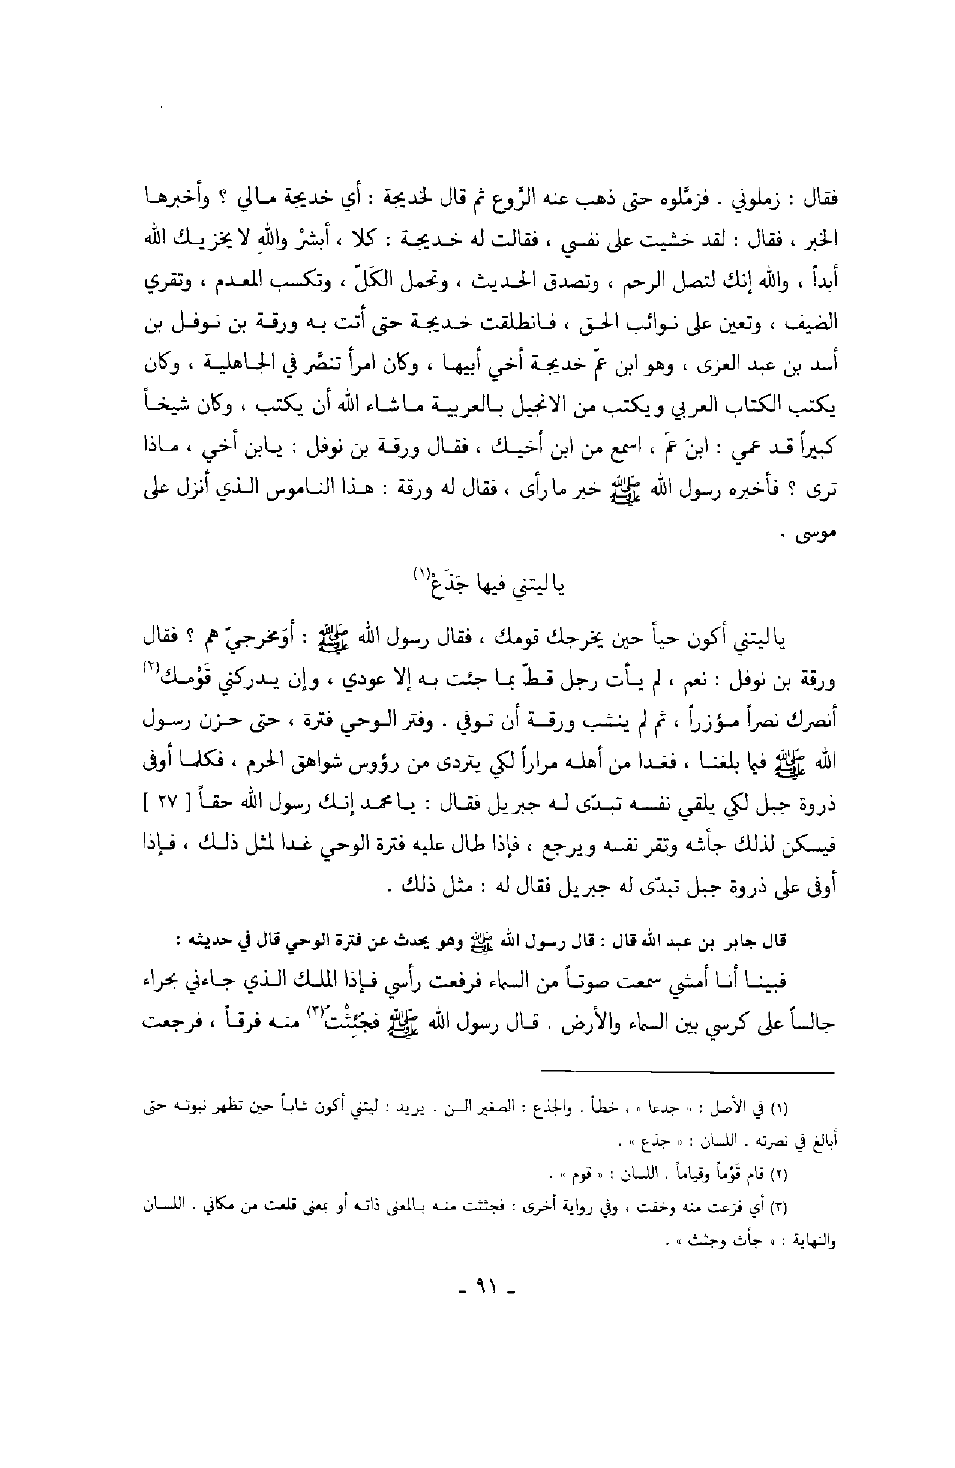 فقال : زملوني . فزمّلوه حتى ذهب عنه الرَّوع ثم قال لخديجة : أي خديجة مالي ؟ وأخبرها
الخبر ، فقال : لقد خشيت على نفسي ، فقالت له خديجة : كلا ، أبشرْ واللهِ لا يخزيك الله
أبداً ، والله إنك لتصل الرحم ، وتصدق الحديث ، وتحمل الكَلّ ، وتكسب المعدم ، وتقري
الضيف ، وتعين على نوائب الحق ، فانطلقت خديجة حتى أتت به ورقة بن نوفل بن
أسد بن عبد العزى ، وهو ابن عمّ خديجة أخي أبيها ، وكان امرأ تنصَّر في الجاهلية ، وكان
يكتب الكتاب العربي ويكتب من الانجيل بالعربية ماشاء الله أن يكتب ، وكان شيخاً
كبيراً قد عمي : ابنَ عمّ ، اسمع من ابن أخيك ، فقال ورقة بن نوفل : يابن أخي ، ماذا
ترى ؟ فأخبره رسول الله ﷺ خبر مارأى ، فقال له ورقة : هذا الناموس الذي أنزل على
موسى .
ياليتني فيها جَذَعْ(١)
ياليتني أكون حياً حين يخرجك قومك ، فقال رسول الله ﷺ : أوَمخرجيّ هم ؟ فقال
ورقة بن نوفل : نعم ، لم يأت رجل قطّ بما جئت به إلا عودي ، وإن يدركني قَوْمك(٢)
أنصرك نصراً مؤزراً ، ثم لم ينشب ورقة أن توفي . وفتر الوحي فترة ، حتى حزن رسول
الله ﷺ فيما بلغنا ، فغدا من أهله مراراً لكي يتردى من رؤوس شواهق الحرم ، فكلما أوفى
ذروة جبل لكي يلقي نفسه تبدّى له جبريل فقال : يامحمد إنك رسول الله حقاً [ ٢٧ ]
فيسكن لذلك جأشه وتقر نفسه ويرجع ، فإذا طال عليه فترة الوحي غدا لمثل ذلك ، فإذا
أوفى على ذروة جبل تبدّى له جبريل فقال له : مثل ذلك .
قال جابر بن عبد الله قال : قال رسول الله ﷺ وهو يحدث عن فترة الوحي قال في حديثه :
فبينا أنا أمشي سمعت صوتاً من السماء فرفعت رأسي فإذا الملك الذي جاءني بحراء
جالساً على كرسي بين السماء والأرض . قال رسول الله ﷺ فجُئِثْتُ(٣) منه فرقاً ، فرجعت
(١) في الأصل : « جدعا » ، خطأ . والجذع : الصغير السن . يريد : ليتني أكون شاباً حين تظهر نبوته حتى
أبالغ في نصرته . اللسان : « جذع » .
(٢) قام قَوْماً وقياماً . اللسان : « قوم » .
(٣) أي فزعت منه وخفت ، وفي رواية أخرى : فجثثت منه بالمعنى ذاته أو بمعنى قلعت من مكاني . اللسان
والنهاية : « جأث وجثث » .
ـ ٩١ ـ